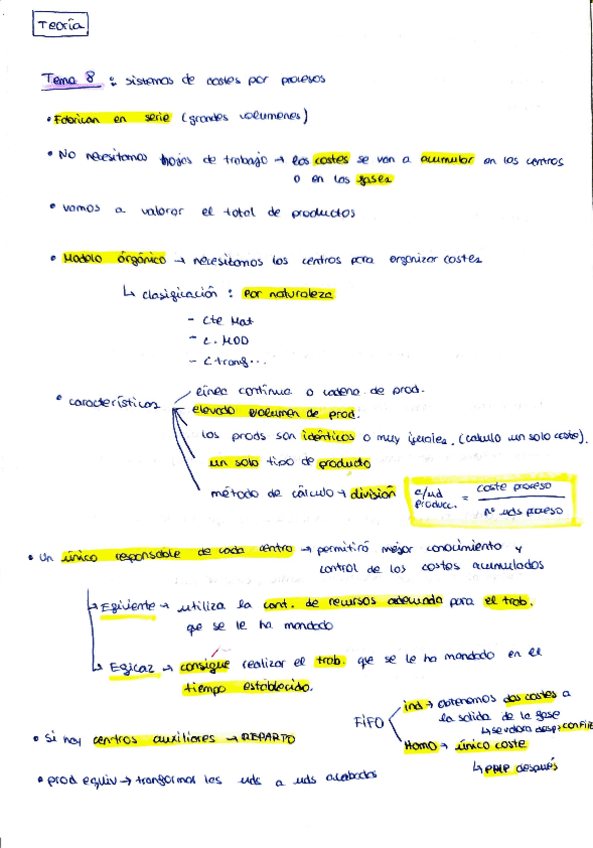 Teoría
Tema 8 : sistemas de costes por procesos
• Fabrican en serie (grandes volumenes)
• No necesitamos hojas de trabajo → los costes se van a acumular en los centros
o en las fases
• vamos a valorar el total de productos
• Modelo órgánico → necesitamos los centros para organizar costes
↳ clasificación : por naturaleza
- Cte Mat
- C. MOD
- C transf...
• características
línea continua o cadena de prod.
elevado volumen de prod.
los prods son idénticos o muy iguales. (calculo un solo coste).
un solo tipo de producto
método de cálculo → división
c/ud producc. = coste proceso / nº uds proceso
• Un único responsable de cada centro → permitirá mejor conocimiento y
control de los costes acumulados
↳ Efiviente → utiliza la cant. de recursos adecuada para el trab.
que se le ha mandado
↳ Eficaz → consigue realizar el trab. que se le ha mandado en el
tiempo establecido.
• Si hay centros auxiliares → REPARTO
FIFO
ind → obtenemos dos costes a
la salida de la fase
↳ se valora desp. con FIFO
Homo → único coste
↳ PMP después
• prod equiv → transformar las uds a uds acabadas